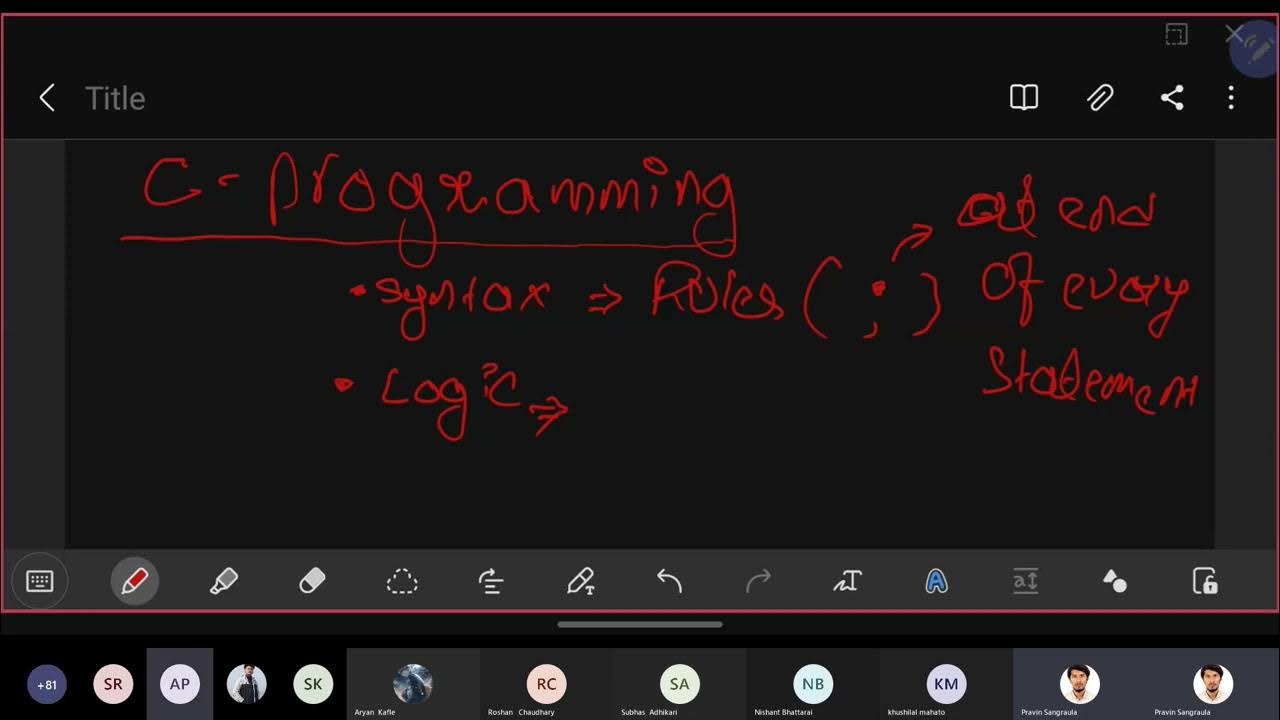 Title
C - Programming
• syntax ⇒ Rules ( ; ) → at end
of every
statement
• Logic ⇒
+81
SR
AP
SK
RC
SA
NB
KM
Aryan Kafle
Roshan Chaudhary
Subhas Adhikari
Nishant Bhattarai
khushilal mahato
Pravin Sangraula
Pravin Sangraula